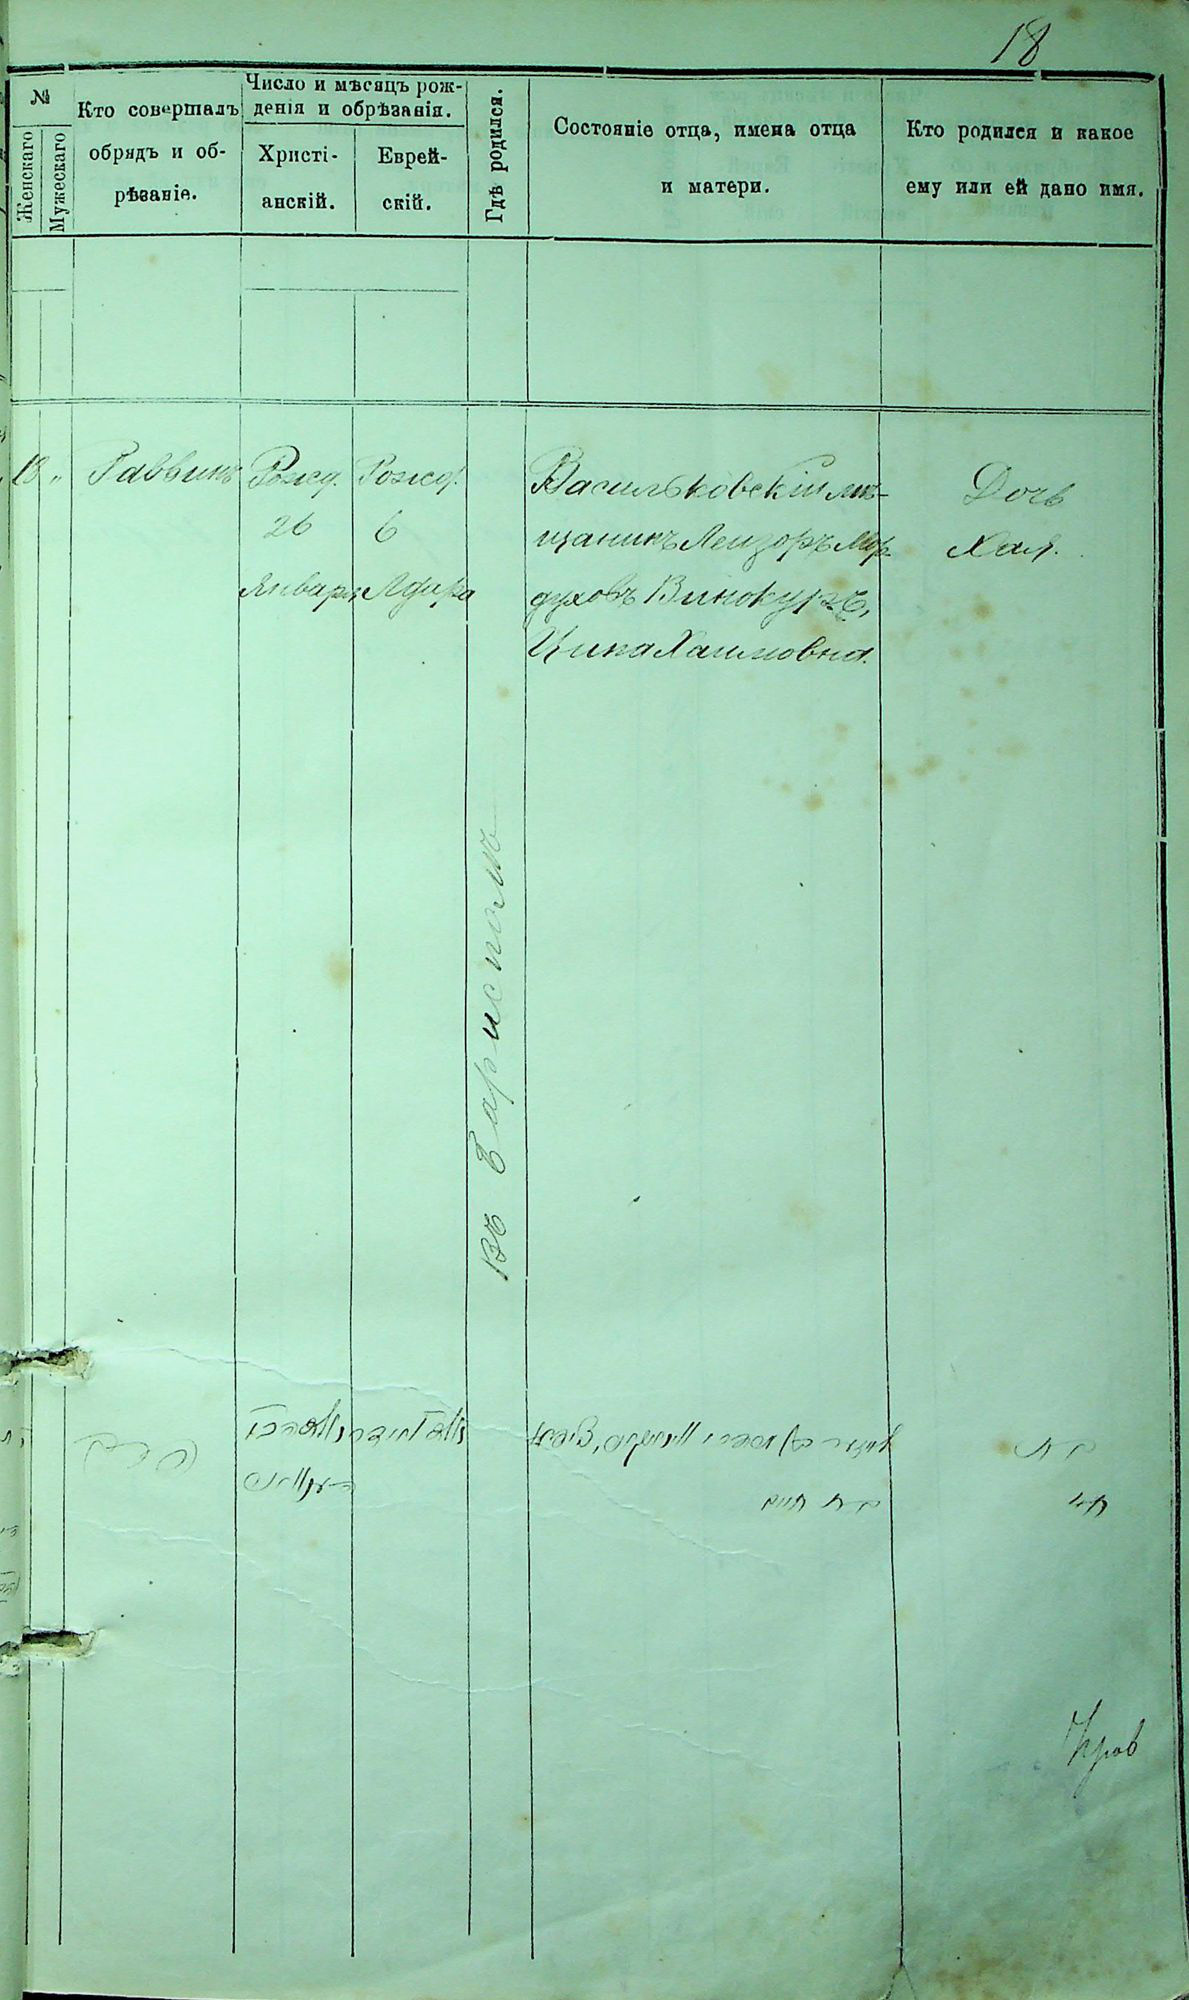 18
№
Женскаго
Мужескаго
Кто совершалъ
обрядъ и об-
рѣзаніе.
Число и мѣсяцъ рож-
денія и обрѣзанія.
Христі-
анскій.
Еврей-
скій.
Гдѣ родился.
Состояніе отца, имена отца
и матери.
Кто родился и какое
ему или ей дано имя.
18 "
Раввинъ
Рожд.
26
Января
Рожд.
6
Адара
въ Барисполѣ
Васильковскій мѣ-
щанинъ Лейзоръ Мор
духовъ Винокуръ,
Ципа Хаимовна.
Дочь
Хая.
בת חיים
בת
חי'